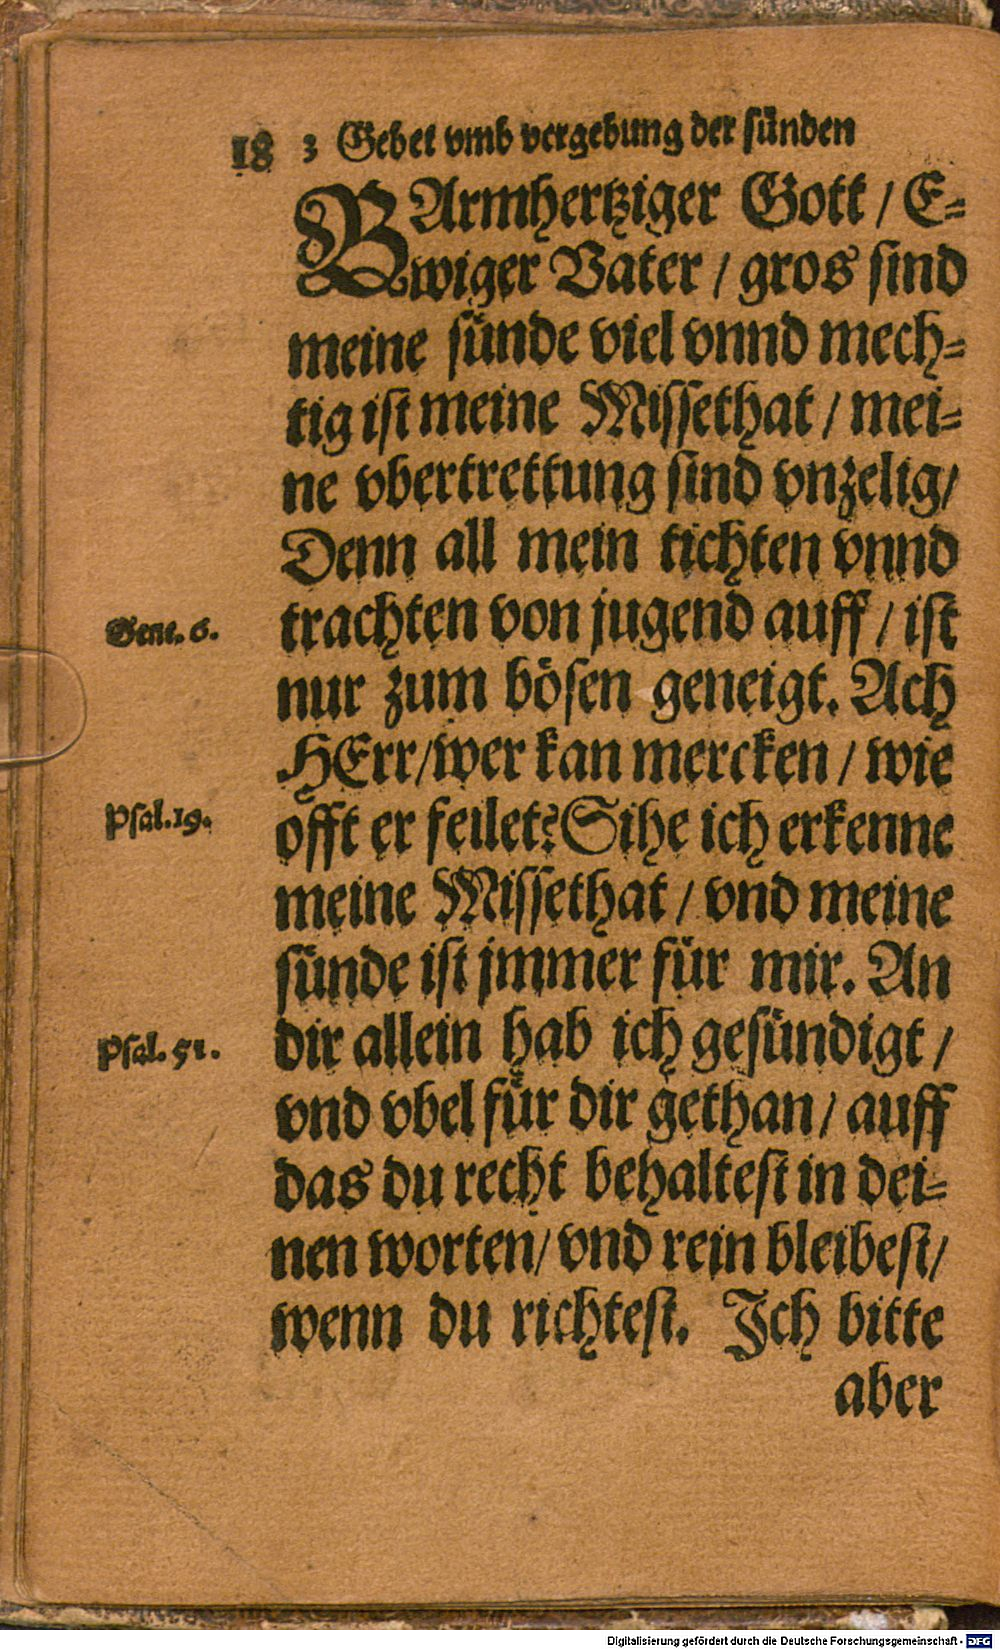 18 3 Gebet vmb vergebung der sünden
BArmhertziger Gott / E-
wiger Vater / gros sind
meine sünde viel vnnd mech-
tig ist meine Missethat / mei-
ne vbertrettung sind vnzelig/
Denn all mein tichten vnnd
Gene. 6. trachten von jugend auff / ist
nur zum bösen geneigt. Ach
HErr/wer kan mercken / wie
Psal. 19. offt er feilet? Sihe ich erkenne
meine Missethat / vnd meine
sünde ist jmmer für mir. An
Psal. 51. dir allein hab ich gesündigt /
vnd vbel für dir gethan / auff
das du recht behaltest in dei-
nen worten/ vnd rein bleibest/
wenn du richtest. Ich bitte
aber
Digitalisierung gefördert durch die Deutsche Forschungsgemeinschaft - DFG